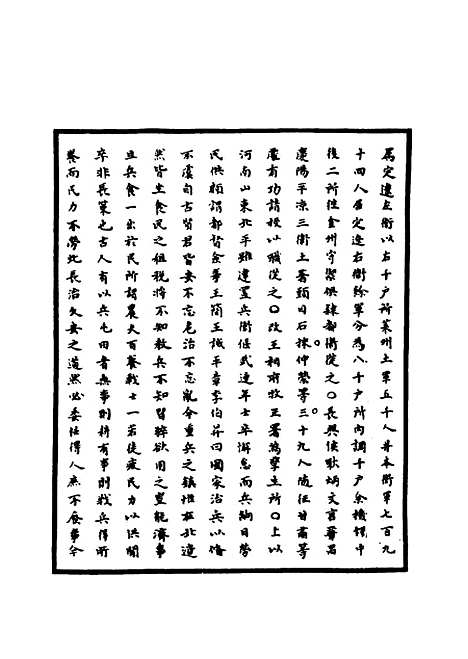 為定遼左衛以右千戶所萊州土軍五千人并本衛軍七百九
十四人屬定遼右衛餘軍分為八千戶所內調千戶余機領中
後二所往金州守禦俱隸都衛從之○長興侯耿炳文言籌昌
慶陽平涼三衛土著頭目石抹仲榮等三十九人隨征甘肅等
處有功請授以職從之○改王相府牧正署為孳生所○上以
河南山東北平雖建置兵衛偃武連年士卒懈怠而兵餉日勞
民供賴謂都督僉事王簡王誠平章李伯昇曰國家治兵以備
不虞自古賢君皆安不忘危治不忘亂今重兵之鎮惟在北邊
然皆坐食民之租稅將不知教兵不知習猝欲用之豈能濟事
且兵食一出於民所謂農夫百養戰士一若徒疲民力以供閒
卒非長策也古人有以兵屯田者無事則耕有事則戰兵得所
養而民力不勞此長治久安之道然必委任得人庶不廢事今